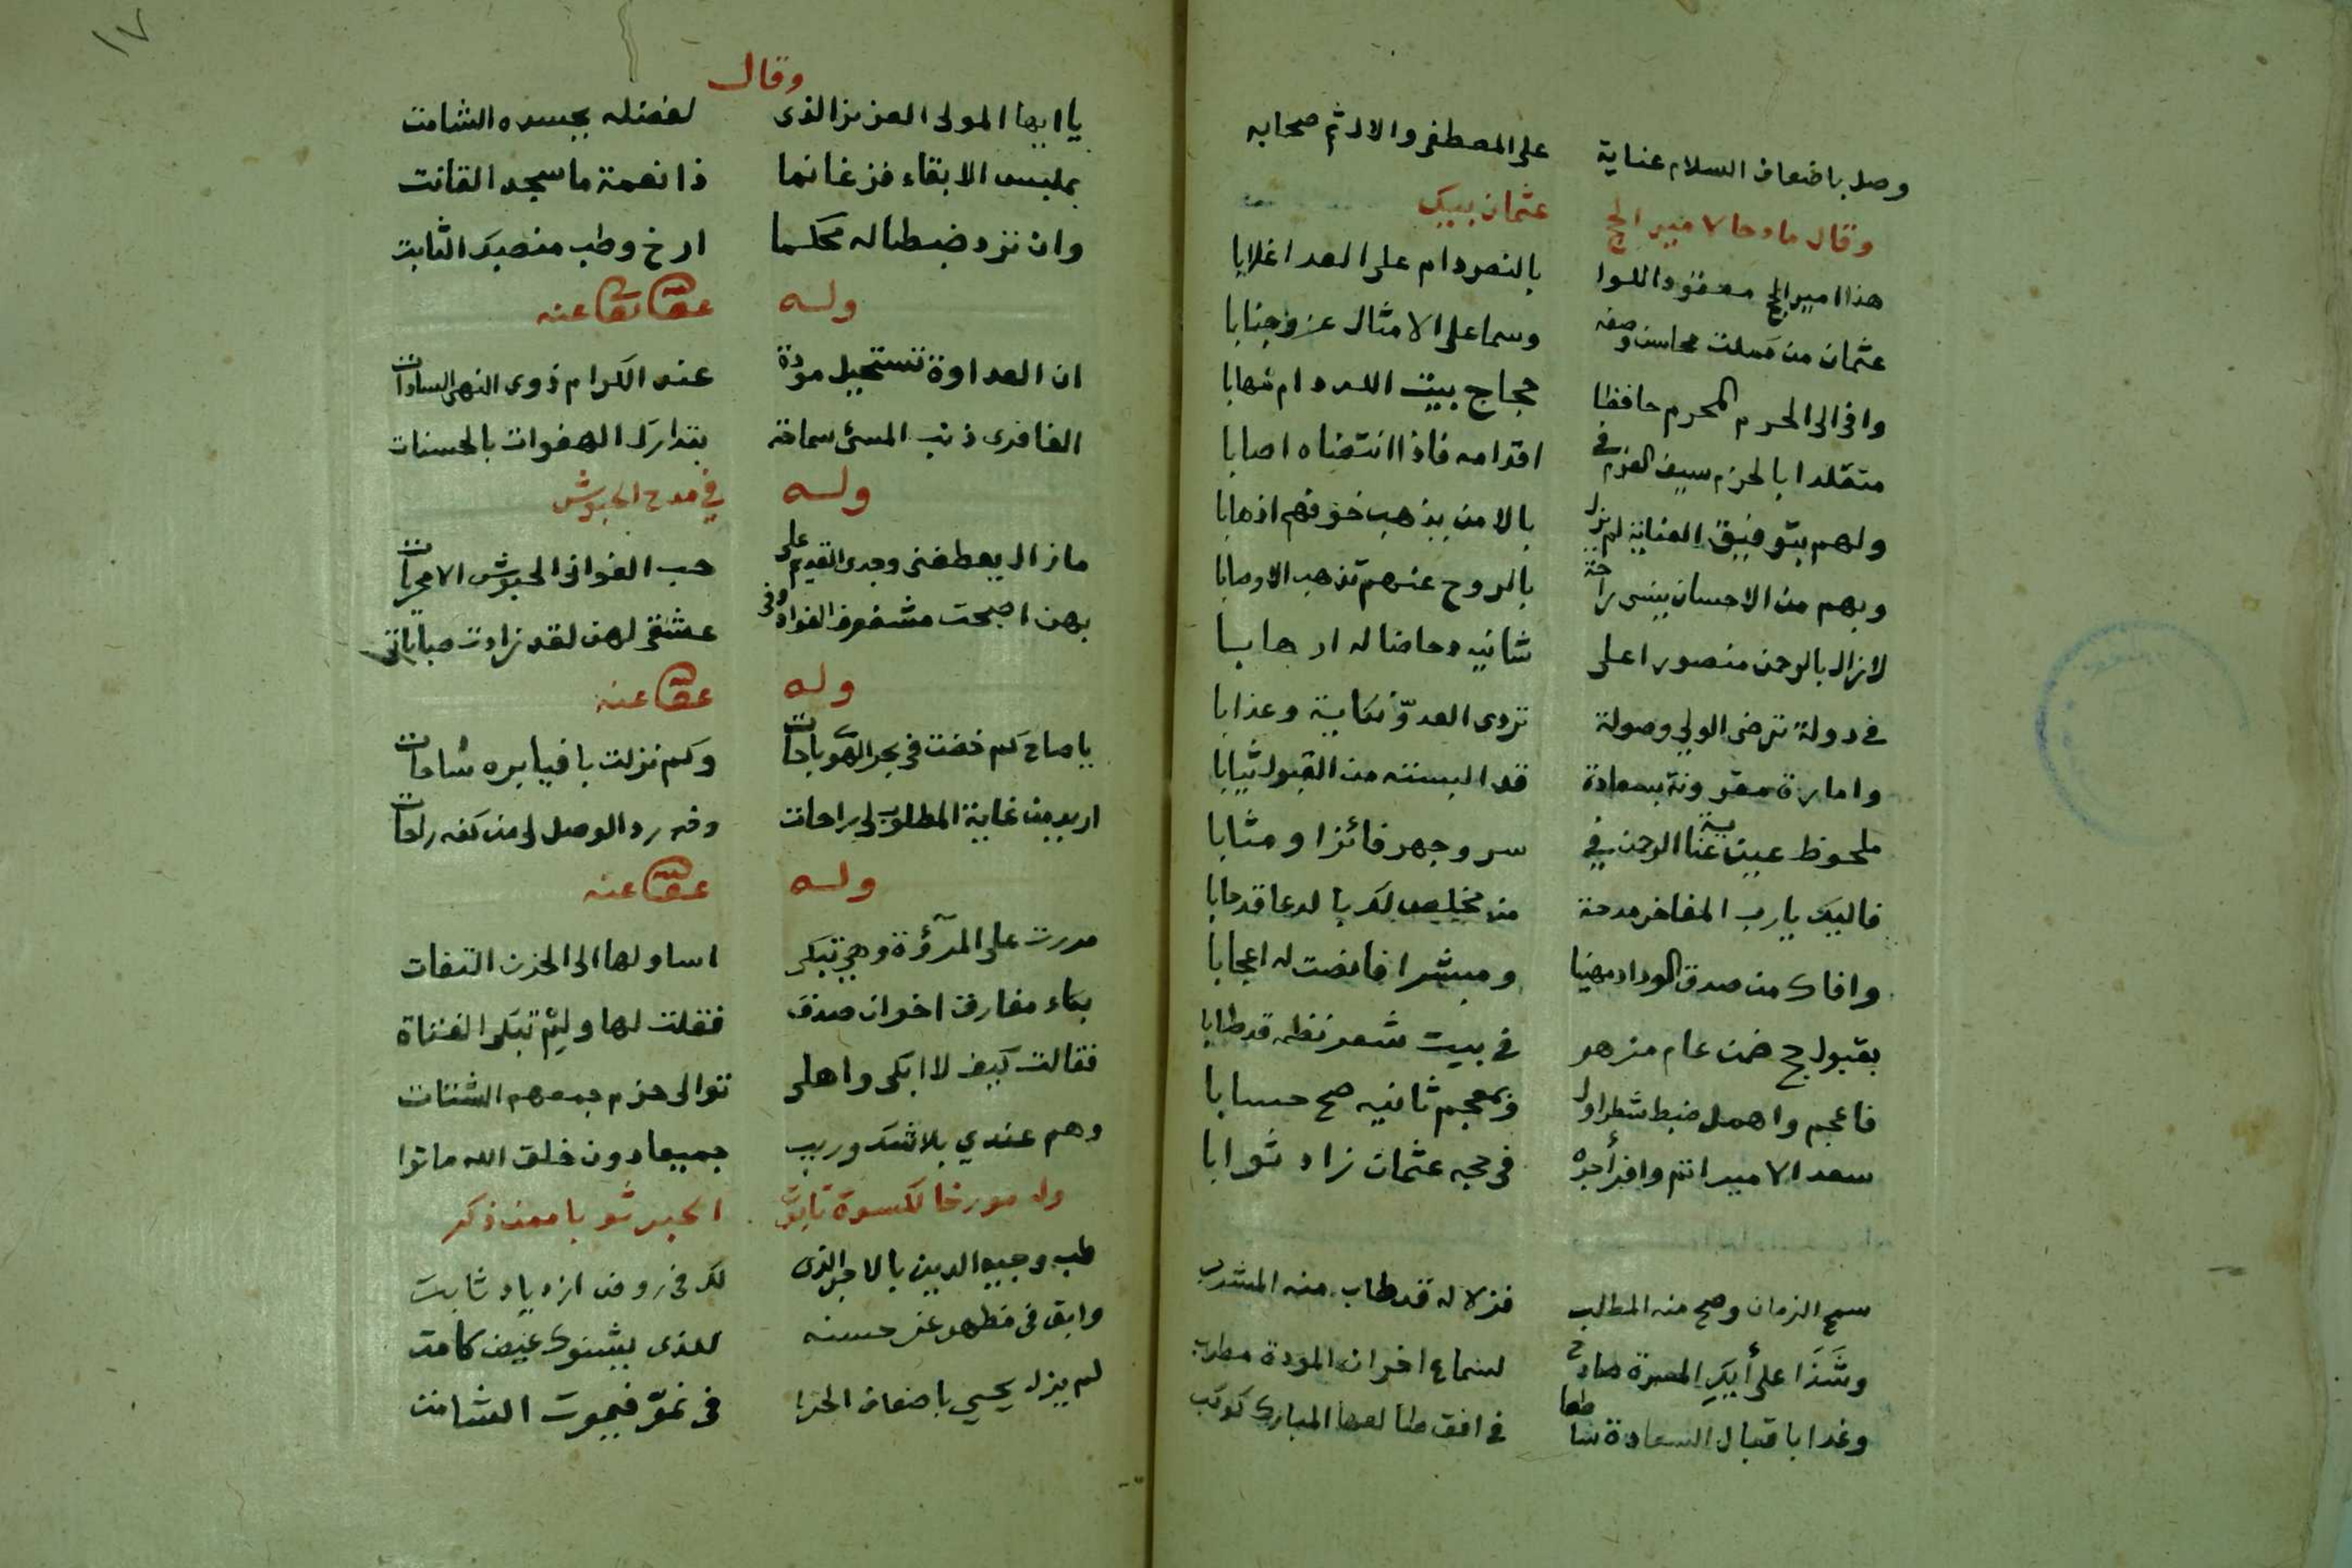 وصل باضعاف السلام عناية على المصطفى والال ثم صحابه
وقال مادحا لامير الحج عثمان بيك
هذا امير الحج معقود اللوا بالنصر دام على العدا غلابا
عثمان من كملت محاسن وصفه وسما على الامثال عز وجنابا
وافى الى الحرم المحرم حافظا حجاج بيت الله دام مهابا
متقلدا بالحزم سيف العزم في اقدامه فاذا انتضاه اصابا
ولهم بتوفيق العناية لم يزل بالامن يذهب خوفهم اذهابا
وبهم من الاحسان ينسى راحة بالروح عنهم تذهب الاوصابا
لازال بالرحمن منصورا على شانيه وحاضا له ارهابا
في دولة ترضى الولي وصولة تردى العدوّ نكاية وعذابا
وامارة مقرونة بسعادة قد البسته من القبول ثيابا
ملحوظ عين عناية الرحمن في سر وجهر فائزا ومثابا
فاليك يا رب المفاخر مدحة من مخلص لك بالدعا قد حابا
وافاك من صدق الوداد مهنيا ومبشرا فانصت له اعجابا
بقبول حج ضمن عام مزهر في بيت شعر نظمه قد طابا
فاعجم واهمل ضبط شطر اول وبمعجم ثانيه صح حسابا
سعد الامير انتم وافر أجره في حجه عثمان زاد ثوابا
سمح الزمان وصح منه المطلب فزلاله قد طاب منه المشرب
وشَذَا على أيك المسرة صادح لسماع اخوان المودة مطرب
وغدا باقبال السعادة ساطعا في افق طالعها المبارك كوكب
١٧
وقال
يا ايها المولى العزيز الذى لفضله يحسده الشامت
بملبس الابقاء فز غانما ذا نعمة ما سجد القانت
وان تزد ضبطا له محكما ارخ وطب منصبك الثابت
وله عفا عنه
ان العداوة تستحيل مودة عند الكرام ذوى النهى السادات
الغافرى ذنب المسئ سماحة بتدارك الهفوات بالحسنات
وله في مدح الحبوش
ما زال يعطفنى وجدى القديم على حب الغوانى الحبوش الامحريات
بهن اصبحت مشغوف الفواد وفى عشقى لهن لقد زادت صباباتى
وله عفا عنه
يا صاح كم خضت في بحر الهوى باحات وكم نزلت با فيابره ساحات
اريد من غاية المطلوب لى راحات وقد رد الوصل لى من كفه راحات
وله عفا عنه
مررت على المرؤة وهي تبكى اساو لها الى الحزن التفات
بكاء مفارق اخوان صدق فقلت لها ولِمْ تبكى الفتاة
فقالت كيف لا ابكى واهلى توالى حزم جمعهم الشتات
وهم عندي بلا شك وريب جميعا دون خلق الله ماتوا
وله مورخا لكسوة تابوت الخبرتو بامعن ذكر
طب وجيه الدين بالاجر الذى لك في روض ازدياد ثابت
وابق فى مظهر عز حسنه للذى يشنوك غيض كامت
لم يزل يحيى باضعاف الجزا فى نموّ فيموت الشامت